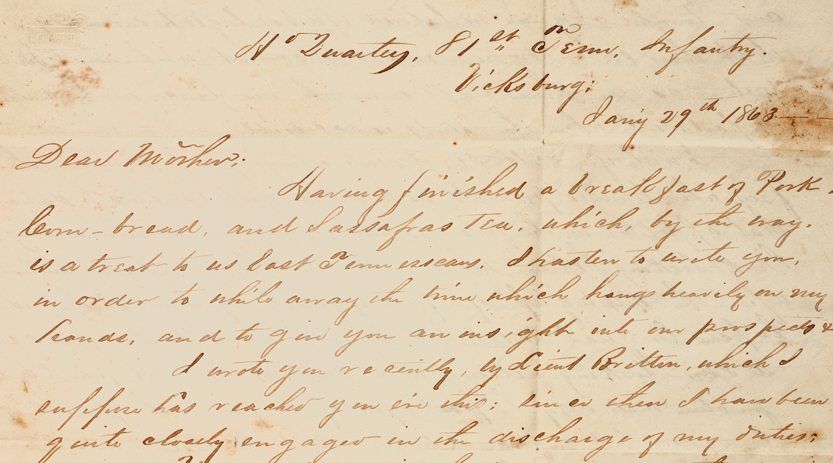 Hd Quarters, 81st Tenn. Infantry.
Vicksburg;
Jany 29th 1863
Dear Mother;
Having finished a breakfast of Pork
Corn-bread, and Sassafras Tea, which, by the way,
is a treat to us East Tennesseans, I hasten to write you,
in order to while away the time which hangs heavily on my
hands, and to give you an insight into our prospects &
I wrote you recently, by Lieut Britton, which I
suppose has reached you ere this; since then I have been
quite closely engaged in the discharge of my duties;